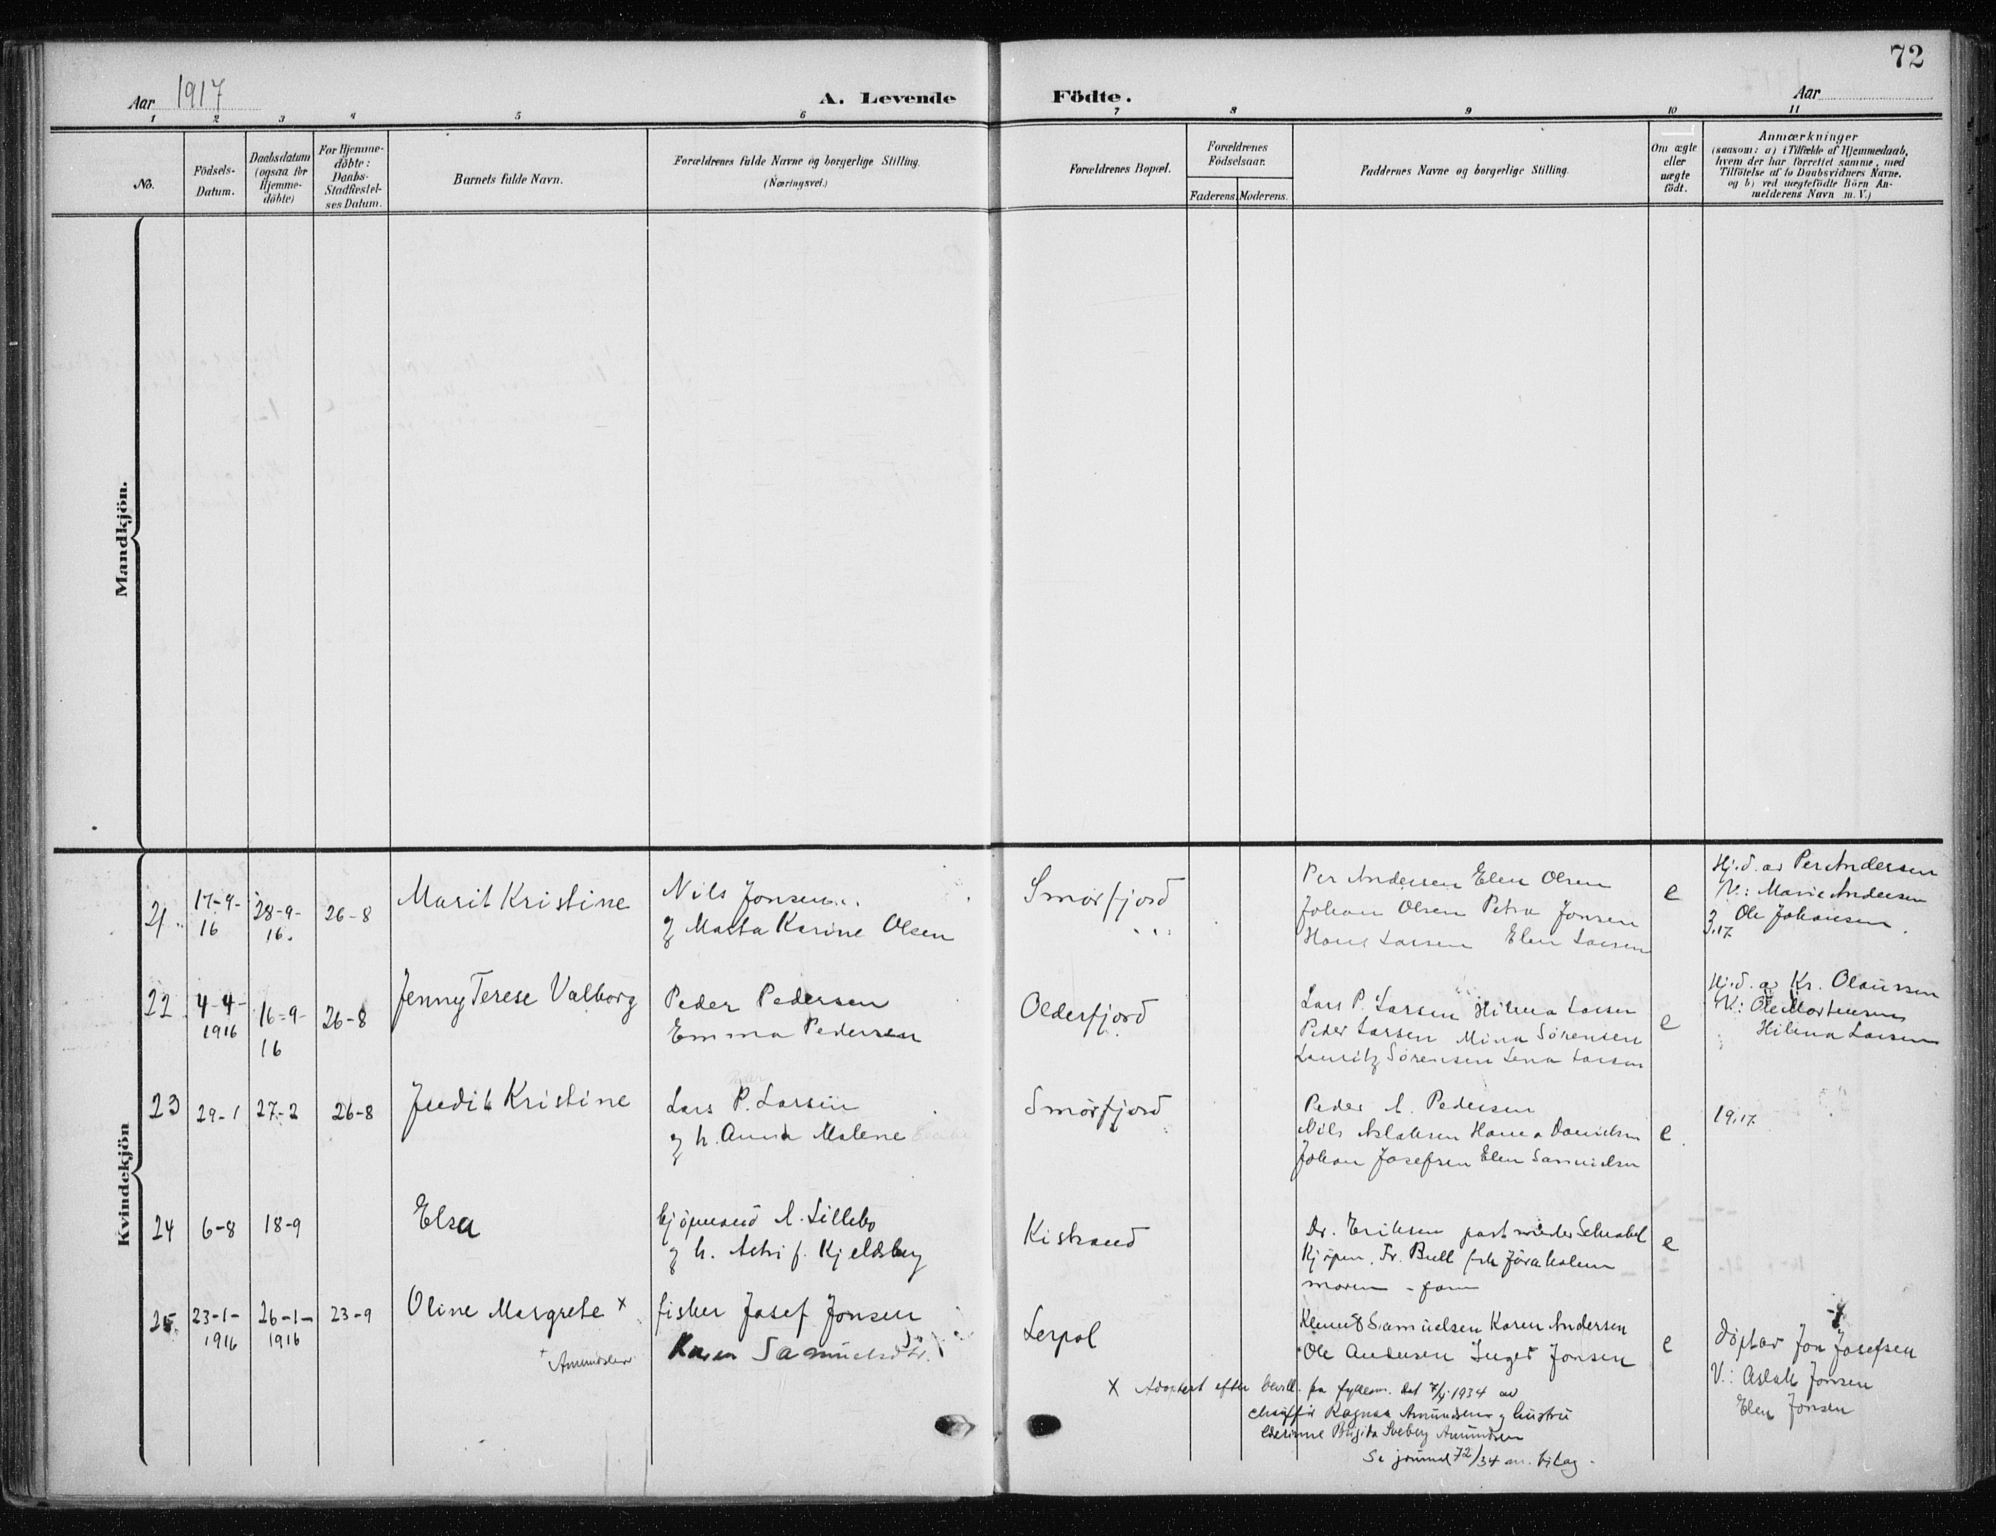 72
Aar 1917
A. Levende Födte.
Aar
1 2 3 4 5 6 7 8 9 10 11
No.
Födsels-
Datum.
Daabsdatum
(ogsaa for
Hjemme-
døbte)
For Hjemme-
døbte:
Daabs-
Stadfæstel-
ses Datum.
Barnets fulde Navn.
Forældrenes fulde Navne og borgerlige Stilling.
(Næringsvei.)
Forældrenes Bopæl.
Forældrenes
Födselsaar.
Faderens. Moderens.
Faddernes Navne og borgerlige Stilling.
Om ægte
eller
uægte
født.
Anmærkninger
(saasom: a) i Tilfælde af Hjemmedaab,
hvem der har forrettet samme, med
Tilføielse af to Daabsvidners Navne.
og b) ved uægtefødte Börn An-
melderens Navn m. V.)
Mandkjön.
Kvindekjön
21
17-9-
16
28-9-
16.
26-8
Marit Kristine
Nils Jonsen
og Marta Karine Olsen
Smørfjord
Per Andersen Elen Olsen
Johan Olsen Petra Jonsen
Hans Larsen Elen Larsen
e
Hj.d. av Per Andersen
V.: Marie Andersen
Ole Johansen.
3.17.
22
4-4-
1916
16-9-
16
26-8
Jenny Terese Valborg
Peder Pedersen
Emma Pedersen
Olderfjord
Lars P. Larsen Hilma Larsen
Peder Larsen Mina Sørensen
Lauritz Sørensen Lena Larsen
e
Hj.d. av Kr. Olaussen
V.: Ole Mortensen
Hilma Larsen
23
29-1
27-2
26-8
Judit Kristine
Lars P. Larsen
og h. Anna Malene
Smørfjord
Peder A. Pedersen
Nils Aslaksen Hanna Danielsen
Johan Josefsen Elen Samuelsen
e.
19.17.
24
6-8
18-9
Elsa
kjøpmand A. Lillebo
og h. Astri f. Kjeldsberg
Kistrand
Dr. Eriksen
Kjøpm. Fr. Bull frk
moren - fam
e
25.
23-1-
1916
26-1-
1916
23-9
Oline Margrete x
+ Amundsen
fisker Josef Jonsen
Karen Samuelsdtr.
Lerpol
Klemet Samuelsen Karen Andersen
Ole Andersen Inger Jonsen
e
døpt av Jon Josefsen
V.: Aslak Jonsen
Elen Jonsen
X Adoptert efter bevill. fra fylkesm. dat 7/4-1934 av
chauffør Ragnar Amundsen og hustru
Sveberg Amundsen
Se journal 72/34 m. bilag.